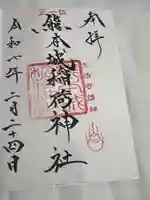 奉拝
正一位
熊本城稲荷神社
令和六年二月二十四日